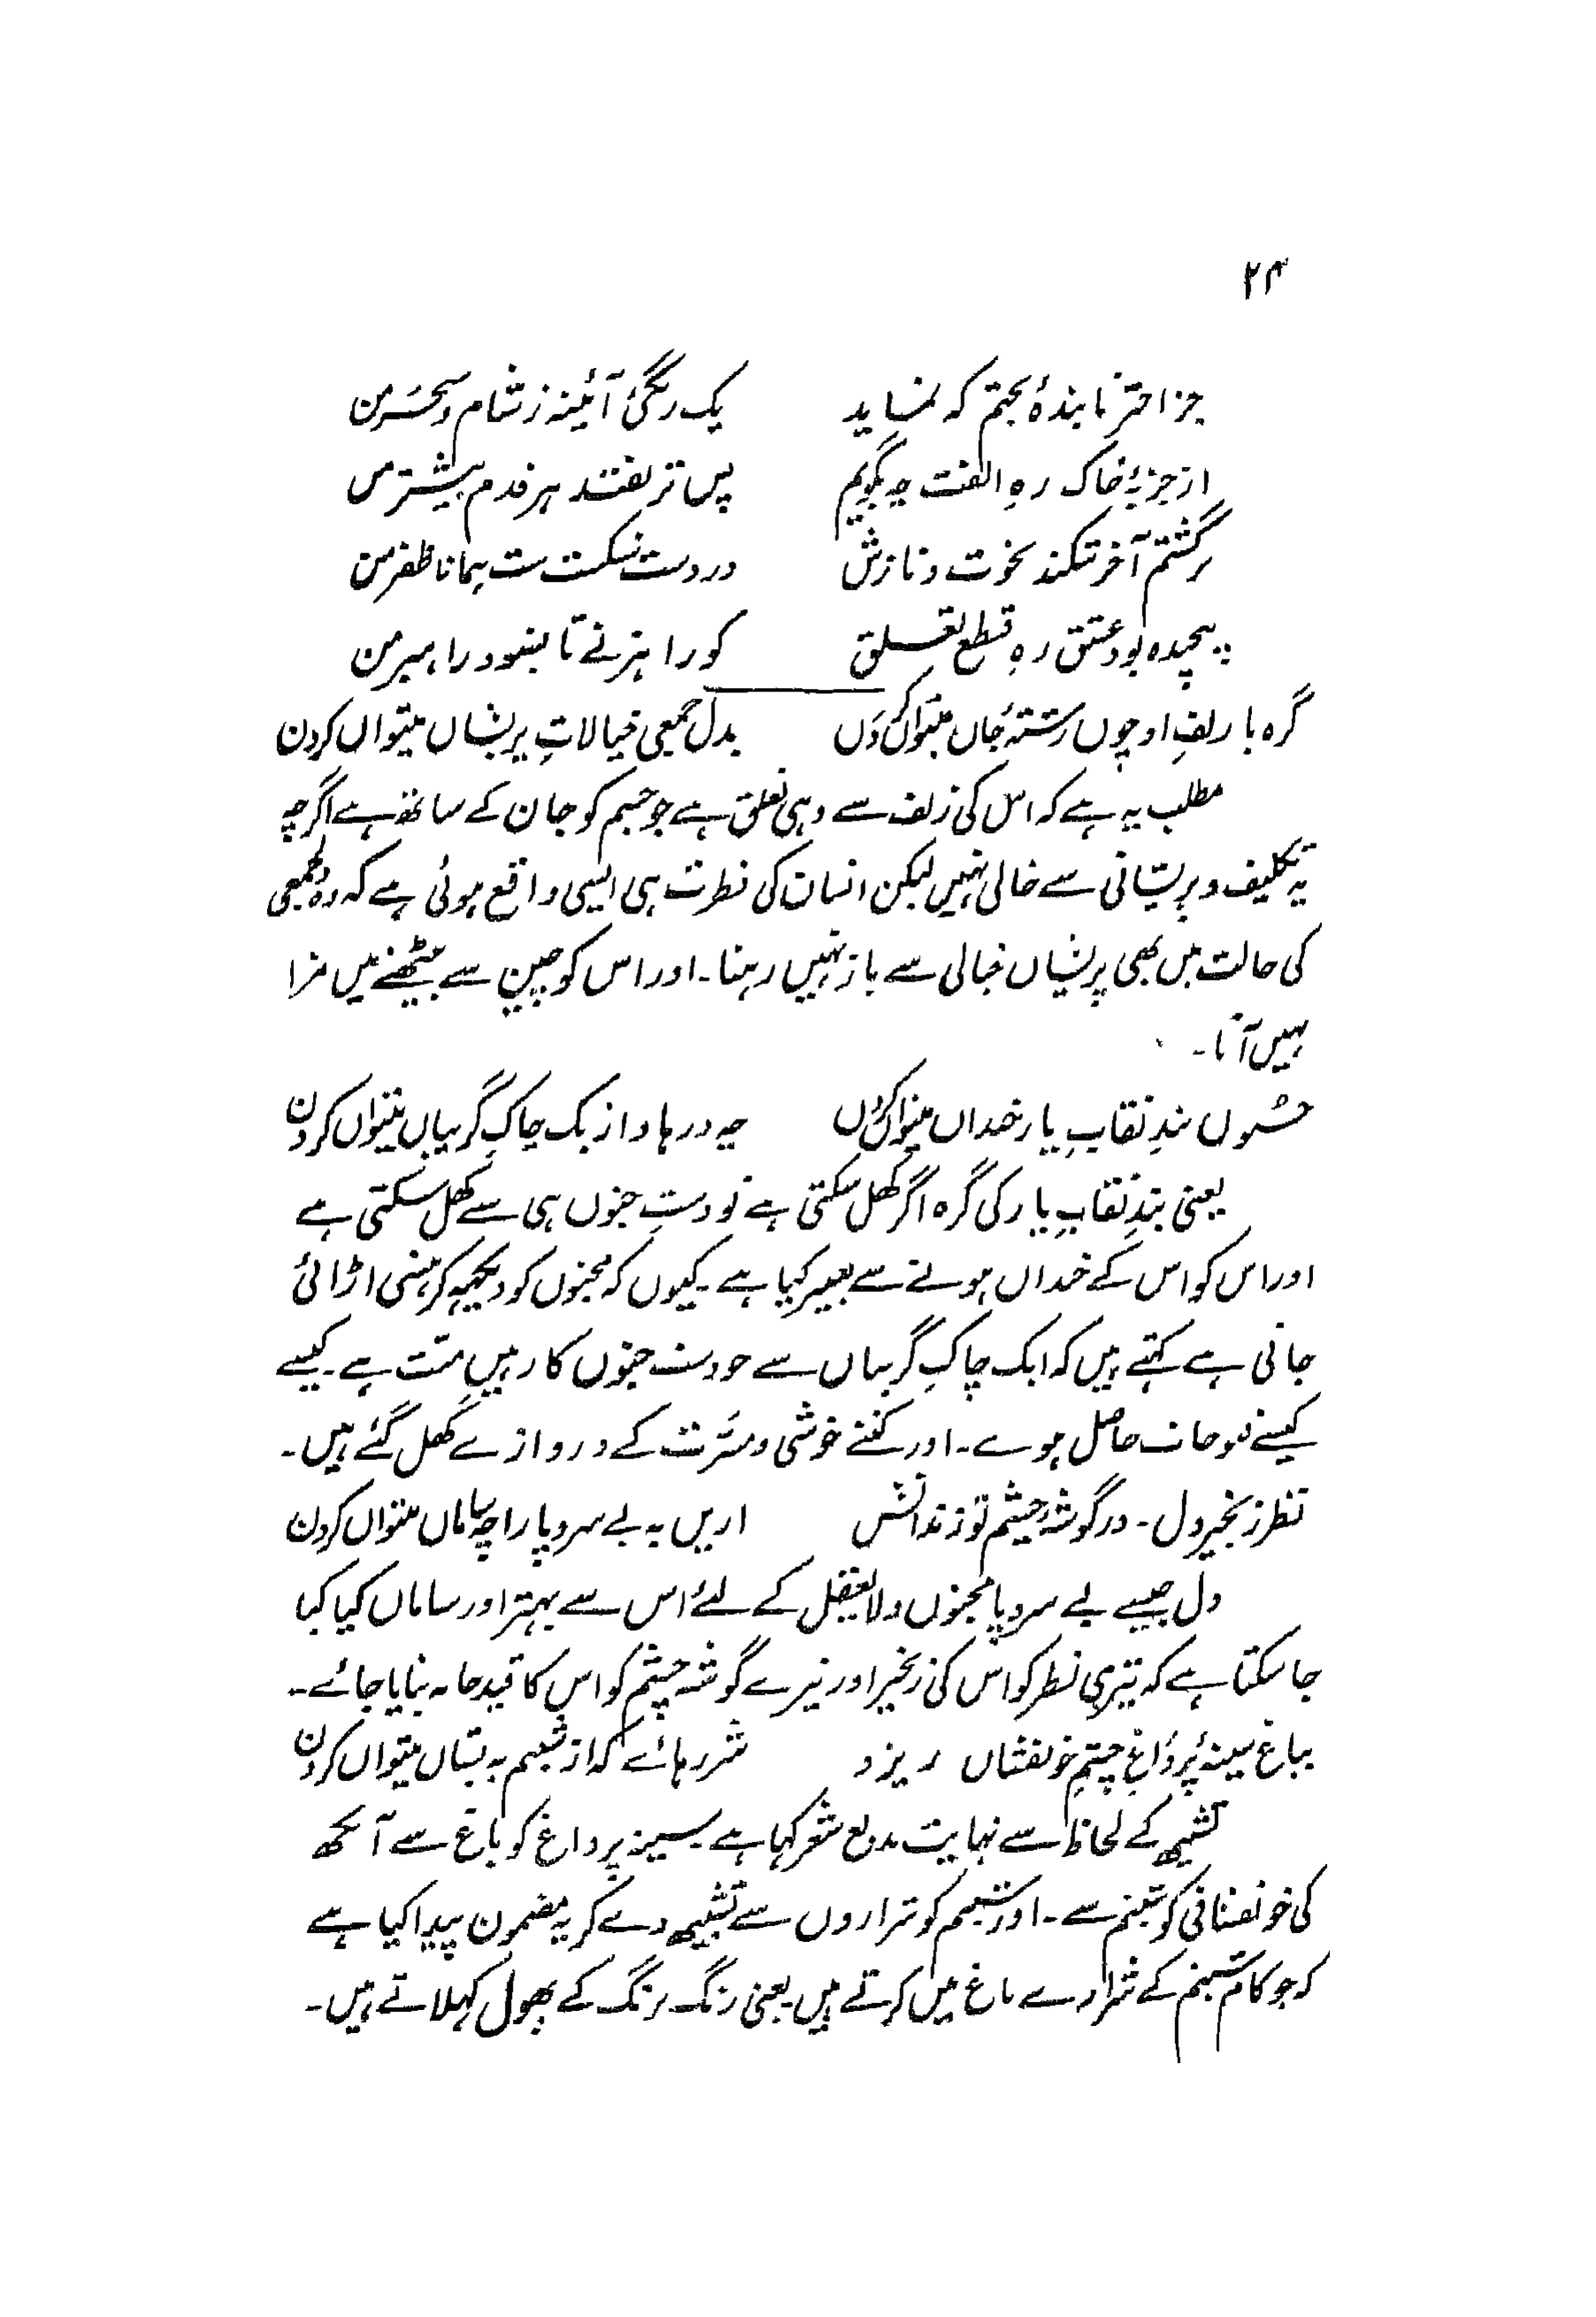 ۲۴
جز اختر تابندۂ بختم کہ نماید یک رنگیٔ آئینہ ز شام و سحرِ من
از جذبۂ خاک رہِ الفت چہ بگویم پس تر نفتد ہر قدم پیشترِ من
برگشتم آخر شکند نخوت و نازش در دست شکست ست ہمانا ظفرِ من
پیچیدہ بود عشق رہِ قطعِ تعلق کو راہزنے تا بشود راہبرِ من
گرہ با زلفِ او چوں رشتۂ جاں میتواں کردن بدل جمعی خیالاتِ پریشاں میتواں کردن
مطلب یہ ہے کہ اس کی زلف سے وہی تعلق ہے جو جسم کو جان کے ساتھ ہے اگرچہ
یہ تکلیف و پریشانی سے خالی نہیں لیکن انسان کی فطرت ہی ایسی واقع ہوئی ہے کہ وہ دلجمعی
کی حالت میں بھی پریشاں خیالی سے باز نہیں رہتا۔ اور اس کو چین سے بیٹھنے میں مزا
نہیں آتا۔
جنوں بندِ نقابِ یار خنداں میتواں کردن چہ درہا وا ز یک چاکِ گریباں میتواں کردن
یعنی بندِ نقابِ یار کی گرہ اگر کھل سکتی ہے تو دستِ جنوں ہی سے کھل سکتی ہے
اور اس کو اس کے خنداں ہونے سے تعبیر کیا ہے۔ کیوں کہ مجنوں کو دیکھ کر ہنسی اڑائی
جاتی ہے کہتے ہیں کہ ایک چاکِ گریباں سے جو دست جنوں کا رہینِ منت ہے۔ کیسے
کیسے فتوحات حاصل ہوے۔ اور کتنے خوشی و مسرّت کے دروازے کھل گئے ہیں۔
نظر زنجیر دل۔ در گوشۂ چشم تو زندانش ازیں بہ بے سر و پا را چہ ساماں میتواں کردن
دل جیسے بے سر و پا مجنوں و لا یعقل کے لئے اس سے بہتر اور ساماں کیا کیا
جا سکتا ہے کہ تیری نظر کو اس کی زنجیر اور تیرے گوشۂ چشم کو اس کا قید خانہ بنایا جائے۔
بباغ سینۂ پُر داغِ چشمِ خونفشاں ریزد شررہائے کہ از شبنم بہ بستاں میتواں کردن
تشبیہ کے لحاظ سے نہایت بدیع شعر کہا ہے۔ سینہ پر داغ کو باغ سے آنکھ
کی خونفشانی کو شبنم سے۔ اور شبنم کو شراروں سے تشبیہ دے کر یہ مضمون پیدا کیا ہے
کہ جو کام شبنم کے شرارے باغ میں کرتے ہیں یعنی رنگ برنگ کے پھول کہلاتے ہیں۔